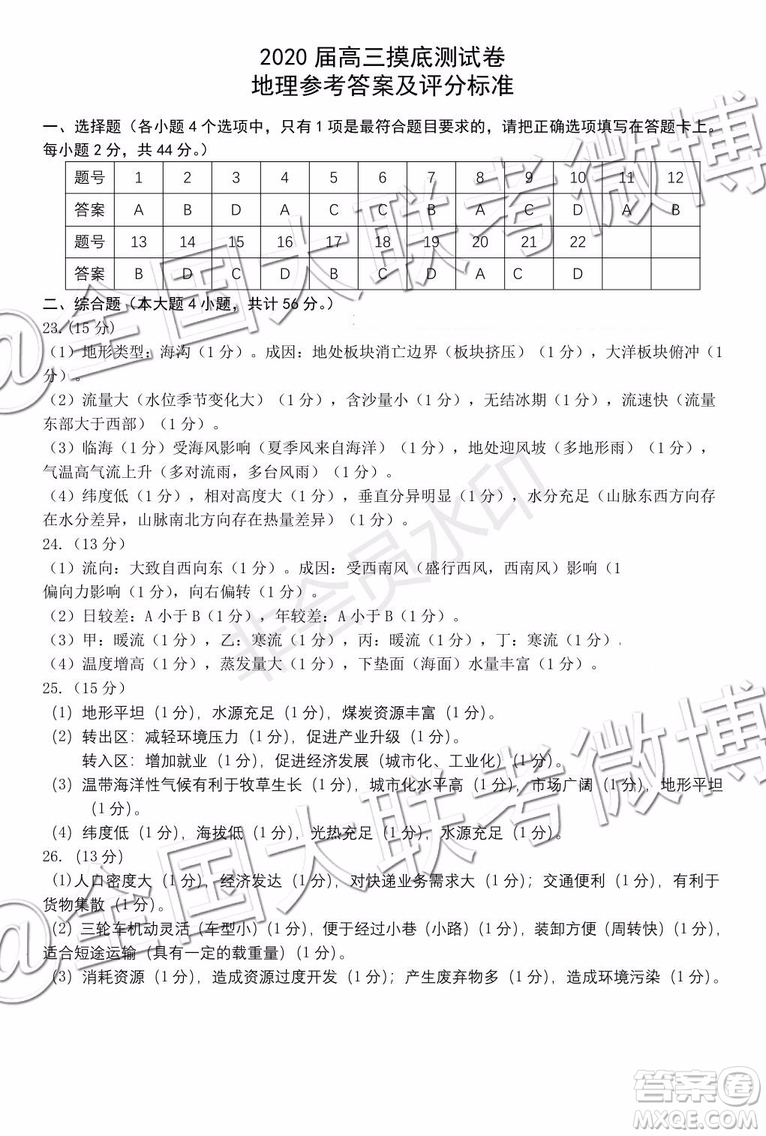 2020 届高三摸底测试卷
地理参考答案及评分标准
一、选择题（各小题 4 个选项中，只有 1 项是最符合题目要求的，请把正确选项填写在答题卡上。
每小题 2 分，共 44 分。）
题号 1 2 3 4 5 6 7 8 9 10 11 12
答案 A B D A C C B A C D A B
题号 13 14 15 16 17 18 19 20 21 22
答案 B D C C B B D A C D
二、综合题（本大题 4 小题，共计 56 分。）
23.（15 分）
（1）地形类型：海沟（1 分）。成因：地处板块消亡边界（板块挤压）（1 分），大洋板块俯冲（1
分）。
（2）流量大（水位季节变化大）（1 分），含沙量小（1 分），无结冰期（1 分），流速快（流量
东部大于西部）（1 分）。
（3）临海（1 分）受海风影响（夏季风来自海洋）（1 分），地处迎风坡（多地形雨）（1 分），
气温高气流上升（多对流雨，多台风雨）（1 分）。
（4）纬度低（1 分），相对高度大（1 分），垂直分异明显（1 分），水分充足（山脉东西方向存
在水分差异，山脉南北方向存在热量差异）（1 分）。
24.（13 分）
（1）流向：大致自西向东（1 分）。成因：受西南风（盛行西风，西南风）影响（1
偏向力影响（1 分），向右偏转（1 分）。
（2）日较差：A 小于 B（1 分），年较差：A 小于 B（1 分）。
（3）甲：暖流（1 分），乙：寒流（1 分），丙：暖流（1 分），丁：寒流（1 分）。
（4）温度增高（1 分），蒸发量大（1 分），下垫面（海面）水量丰富（1 分）。
25.（15 分）
（1）地形平坦（1 分），水源充足（1 分），煤炭资源丰富（1 分）。
（2）转出区：减轻环境压力（1 分），促进产业升级（1 分）。
转入区：增加就业（1 分），促进经济发展（城市化、工业化）（1 分）。
（3）温带海洋性气候有利于牧草生长（1 分），城市化水平高（1 分），市场广阔（1 分），地形平坦
（1 分）。
（4）纬度低（1 分），海拔低（1 分），光热充足（1 分），水源充足（1 分）。
26.（13 分）
（1）人口密度大（1 分），经济发达（1 分），对快递业务需求大（1 分）；交通便利（1 分），利于
货物集散（1 分）。
（2）三轮车机动灵活（车型小）（1 分），便于经过小巷（小路）（1 分），装卸方便（周转快）（1 分），
适合短途运输（具有一定的载重量）（1 分）。
（3）消耗资源（1 分），造成资源过度开发（1 分）；产生废弃物多（1 分），造成环境污染（1 分）。
@全国大联考微博
@全国大联考微博
非会员水印
答案卷
MXQE.COM